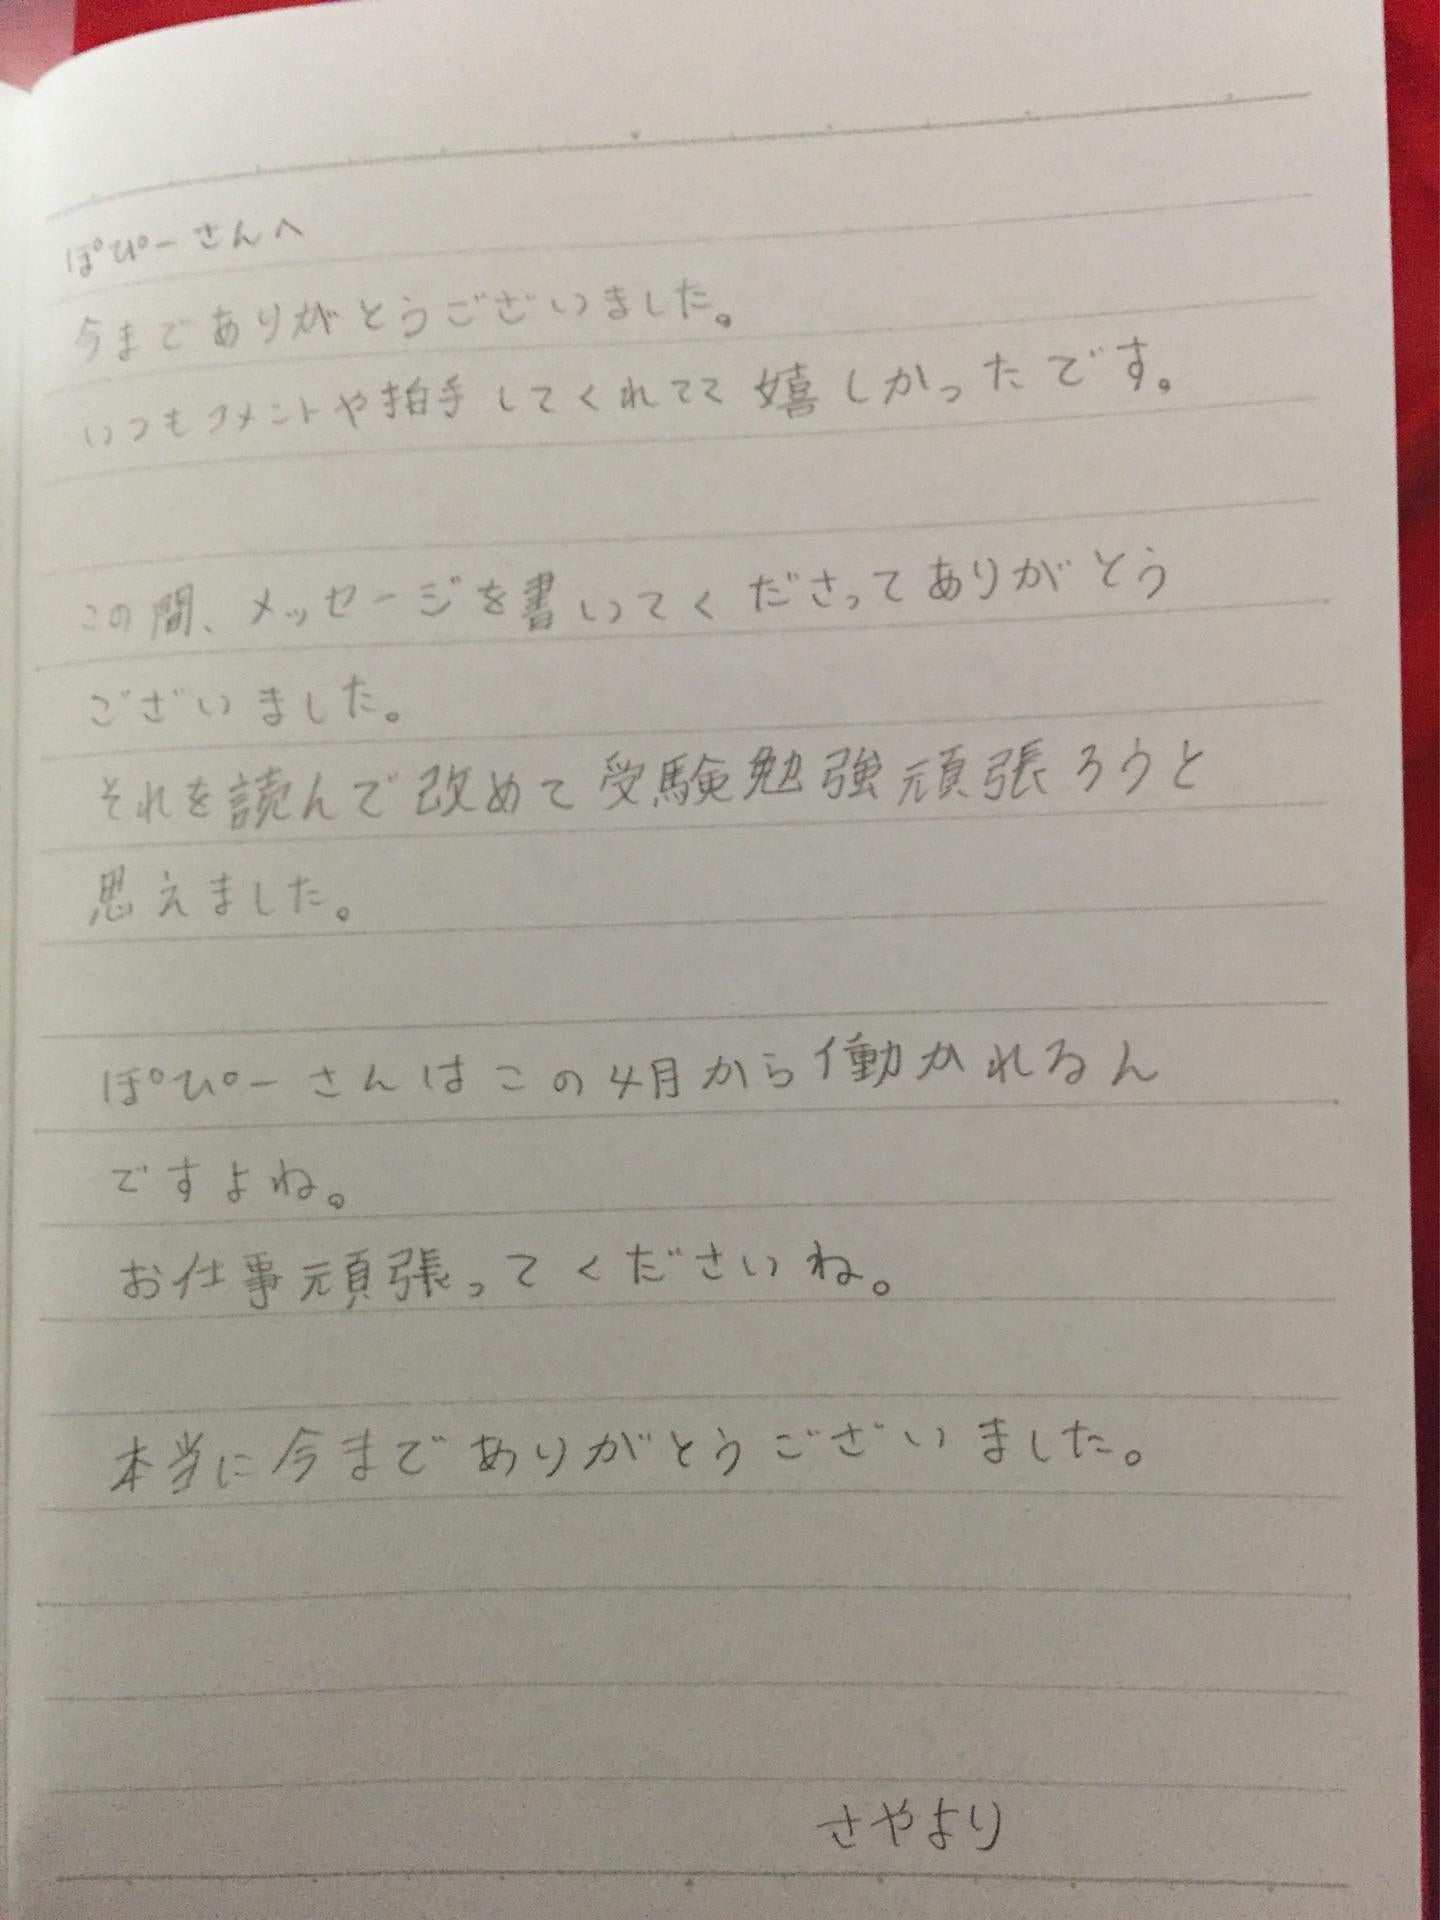 ぽぴーさんへ
今までありがとうございました。
いつもコメントや拍手してくれてて嬉しかったです。
この間、メッセージを書いてくださってありがとう
ございました。
それを読んで改めて受験勉強頑張ろうと
思えました。
ぽぴーさんはこの4月から働かれるん
ですよね。
お仕事頑張ってくださいね。
本当に今までありがとうございました。
さやより